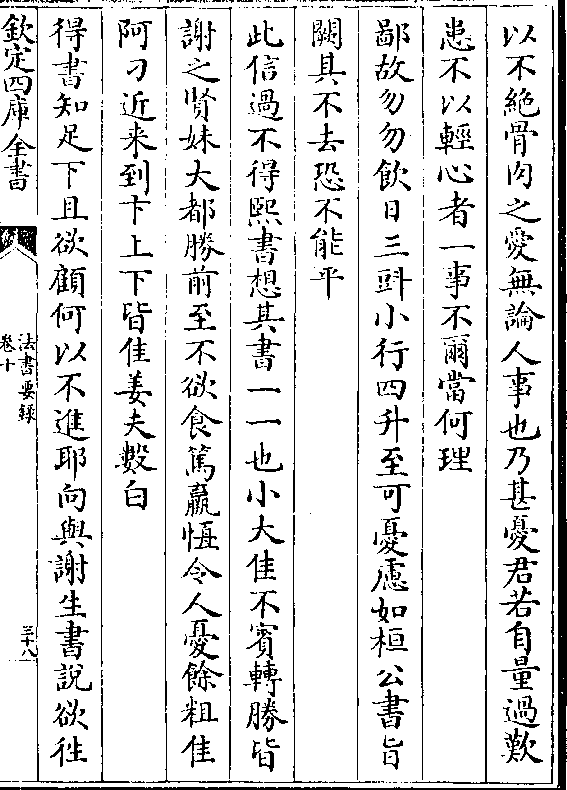 以不絶骨肉之愛無論人事也乃甚憂君若自量過歎
患不以輕心者一事不爾當何理
鄙故勿勿飲日三㪷小行四升至可憂慮如桓公書旨
闕其不去恐不能平
此信過不得熙書想其書一一也小大佳不賓轉勝皆
謝之賢妹大都勝前至不欲食篤羸恒令人憂餘粗佳
阿刁近来到卞上下皆佳姜夫數白
得書知足下且欲顧何以不進耶向與謝生書説欲徃
欽定四庫全書
法書要録
卷十
三十八